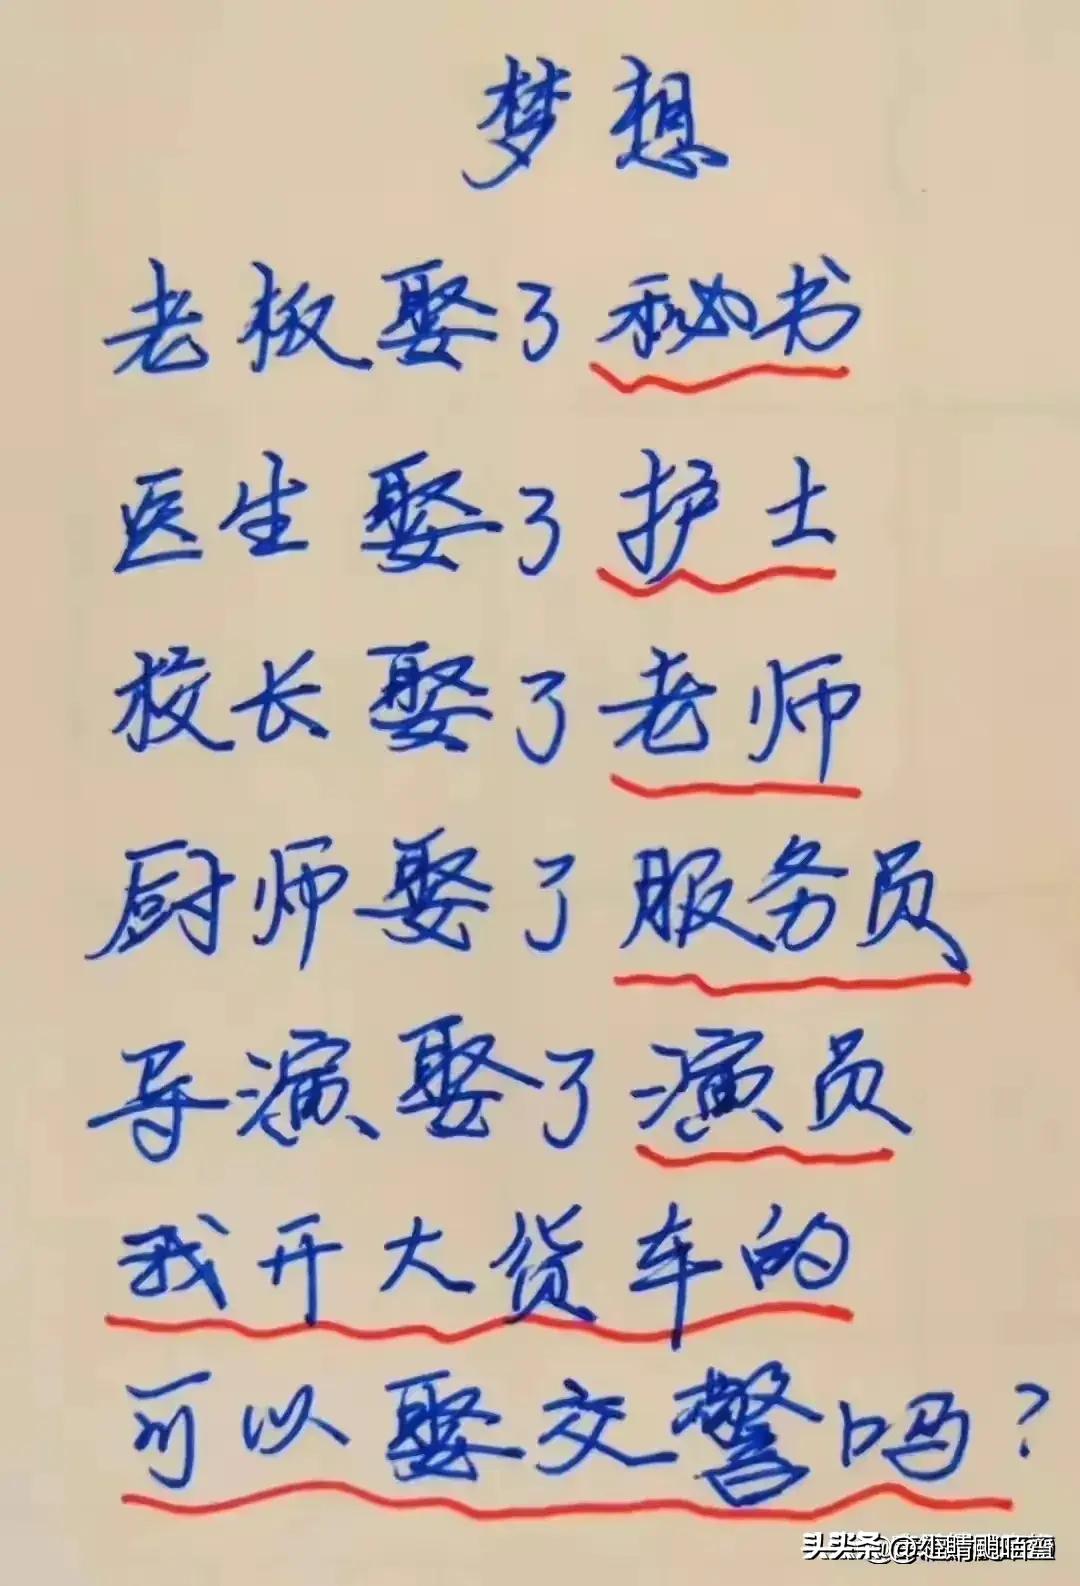 梦想
老板娶了秘书
医生娶了护士
校长娶了老师
厨师娶了服务员
导演娶了演员
我开大货车的
可以娶交警吗?
头条